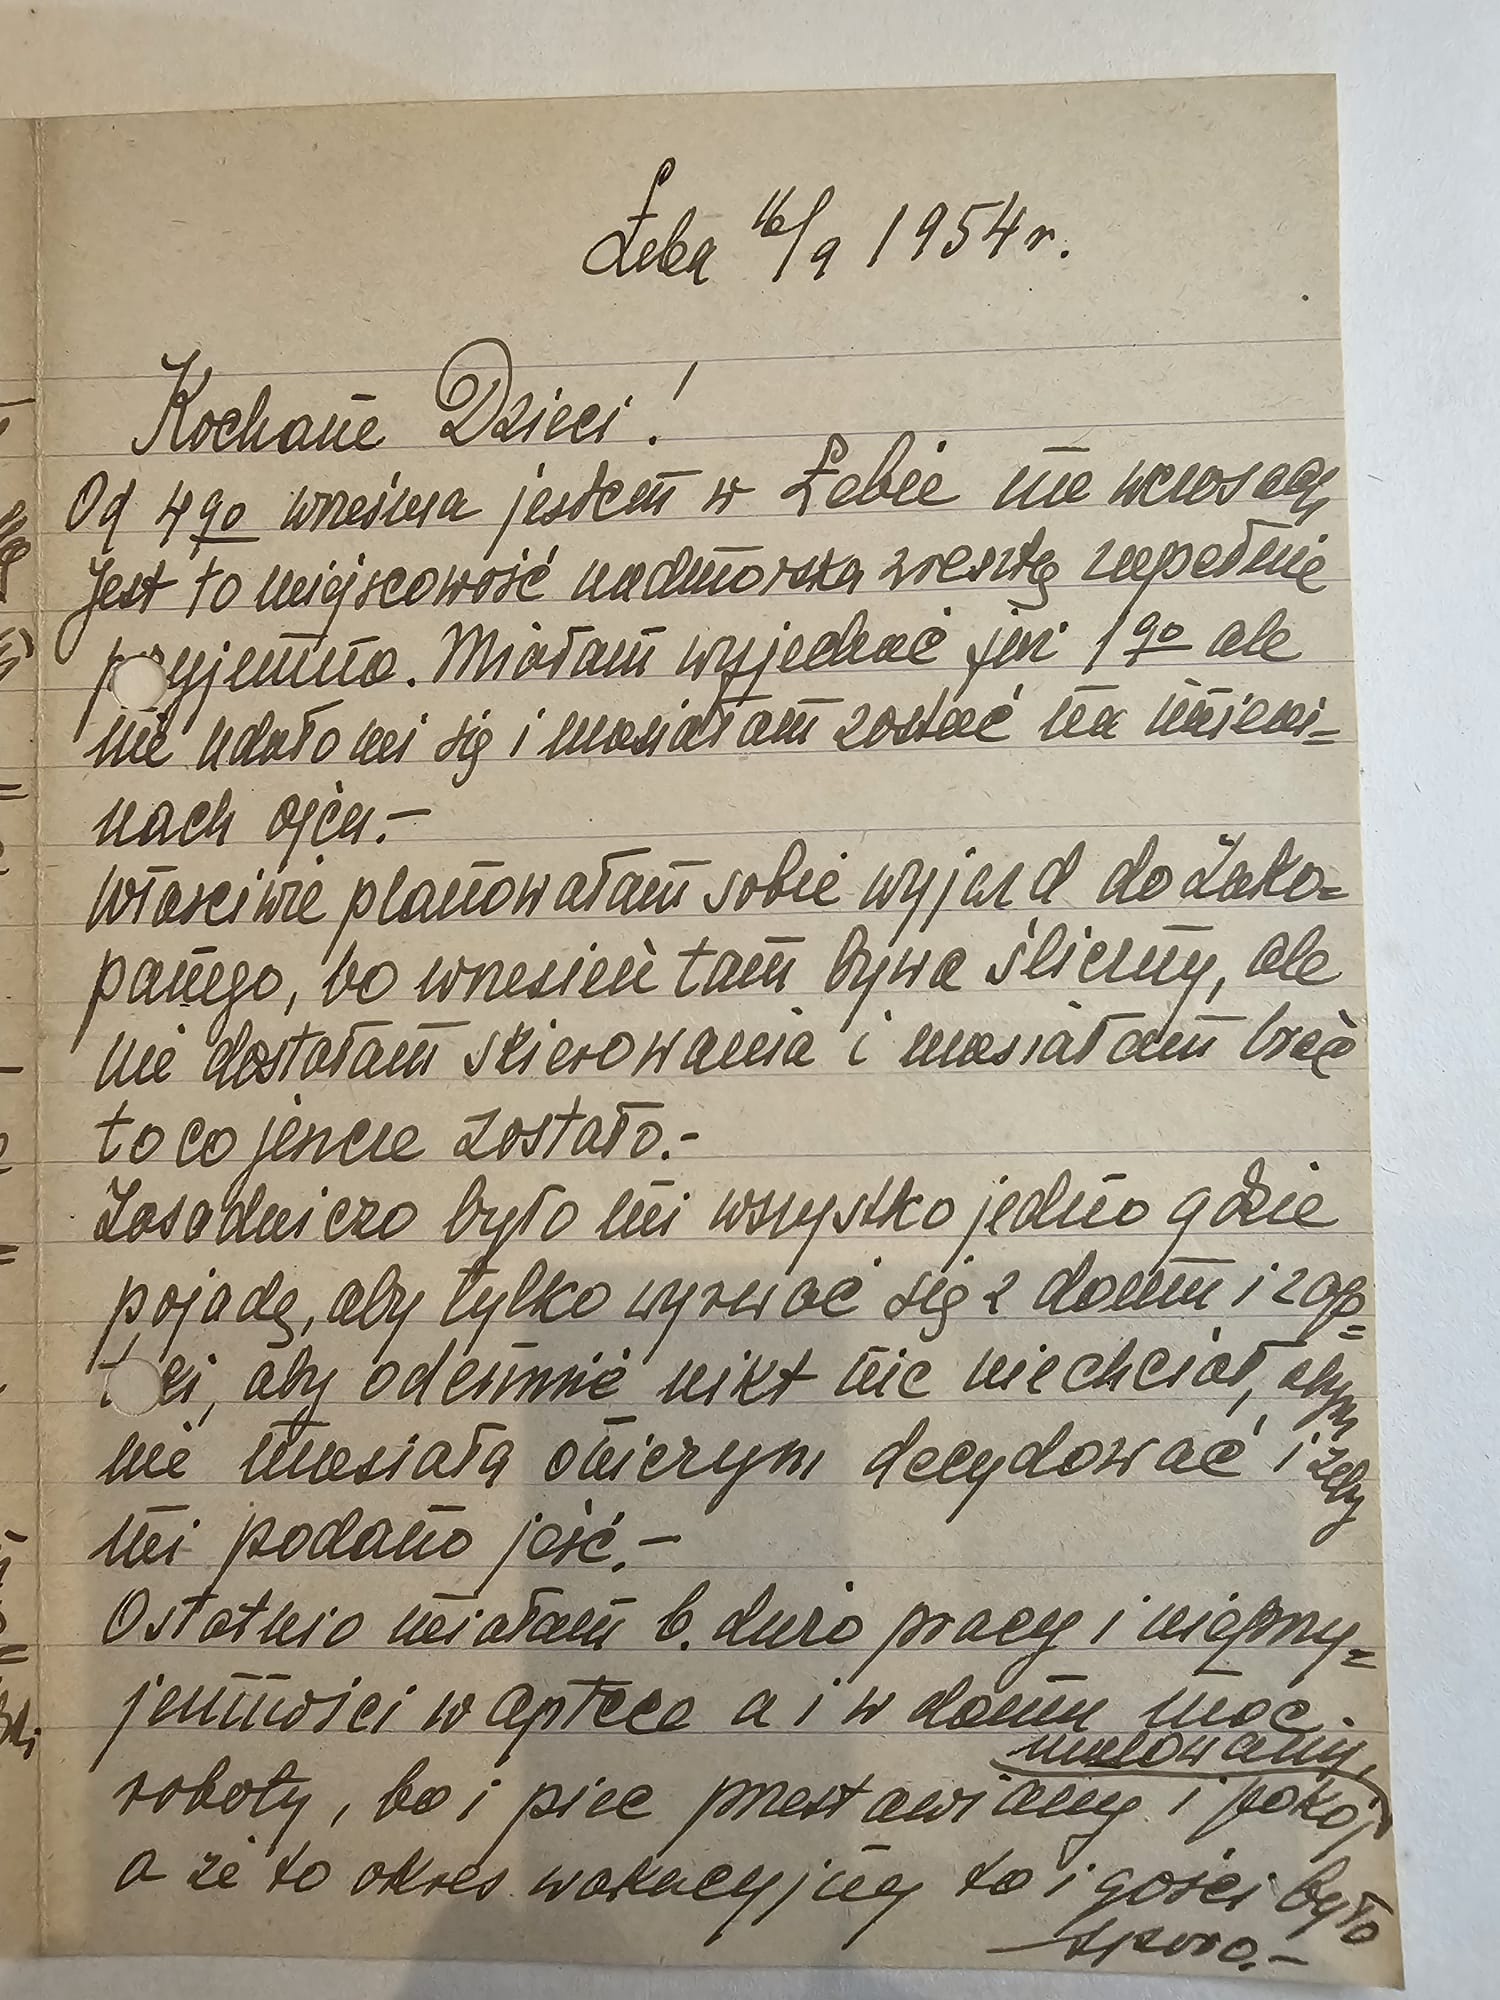 Łeba 16/9 1954 r.
Kochane Dzieci!
Od 4go września jestem w Łebie na wczasach
Jest to miejscowość nadmorska zresztą zupełnie
przyjemna. Miałam wyjechać już 1go ale
nie udało mi się i musiałam zostać na imieni=
nach ojca.-
Właściwie planowałam sobie wyjazd do Zako=
panego, bo wrzesień tam bywa śliczny, ale
nie dostałam skierowania i musiałam brać
to co jeszcze zostało.-
Zasadniczo było mi wszystko jedno gdzie
pojadę, aby tylko wyrwać się z domu i z ap=
teki, aby odemnie nikt nic niechciał, abym
nie musiała oniczym decydować i żeby
mi podano jeść.-
Ostatnio miałam b. dużo pracy i nieprzy=
jemności w aptece a i w domu moc
roboty, bo i piec przestawiany i pokój malowany,
a że to okres wakacyjny to i gości było
sporo.-